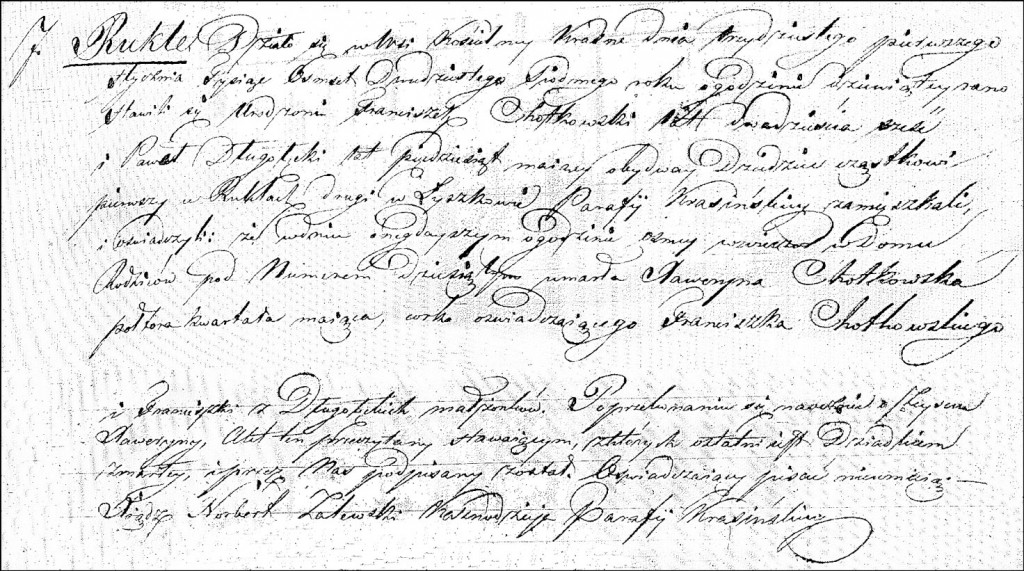 7 Rukle. Działo się w Wsi Kościelney Krasne dnia trzydziestego pierwszego
stycznia Tysiąc Osmset Dwudziestego Siodmego roku o godzinie dziewiątey rano
stawili się Urodzeni Franciszek Chotkowski lat dwadzieścia sześć
i Paweł Długołęcki lat pięćdziesiąt maiący obydwaj Dziedzice cząstkowi
pierwszy w Rukłach drugi w Łyszkowie Parafij Krasińskiey zamieszkali,
i oświadczyli: że w dniu onegdayszym o godzinie osmey wieczor w Domu
Rodzicow pod Numerem dziesiątym umarła Saweryna Chotkowska
połtora kwartała maiąca, corka oświadczaiącego Franciszka Chotkowskiego
i Franciszki z Długołęckich małżonkow. Po przekonaniu się naocznie o zeysciu
Saweryny, Akt ten przeczytany stawaiącym, z których ostatni iest Dziadkiem
zmarłey, i przez Nas podpisany został. Oświadczaiący pisać nieumieią. —
Xiądz Norbert Zalewski Kaznodzieja Parafij Krasińskiey